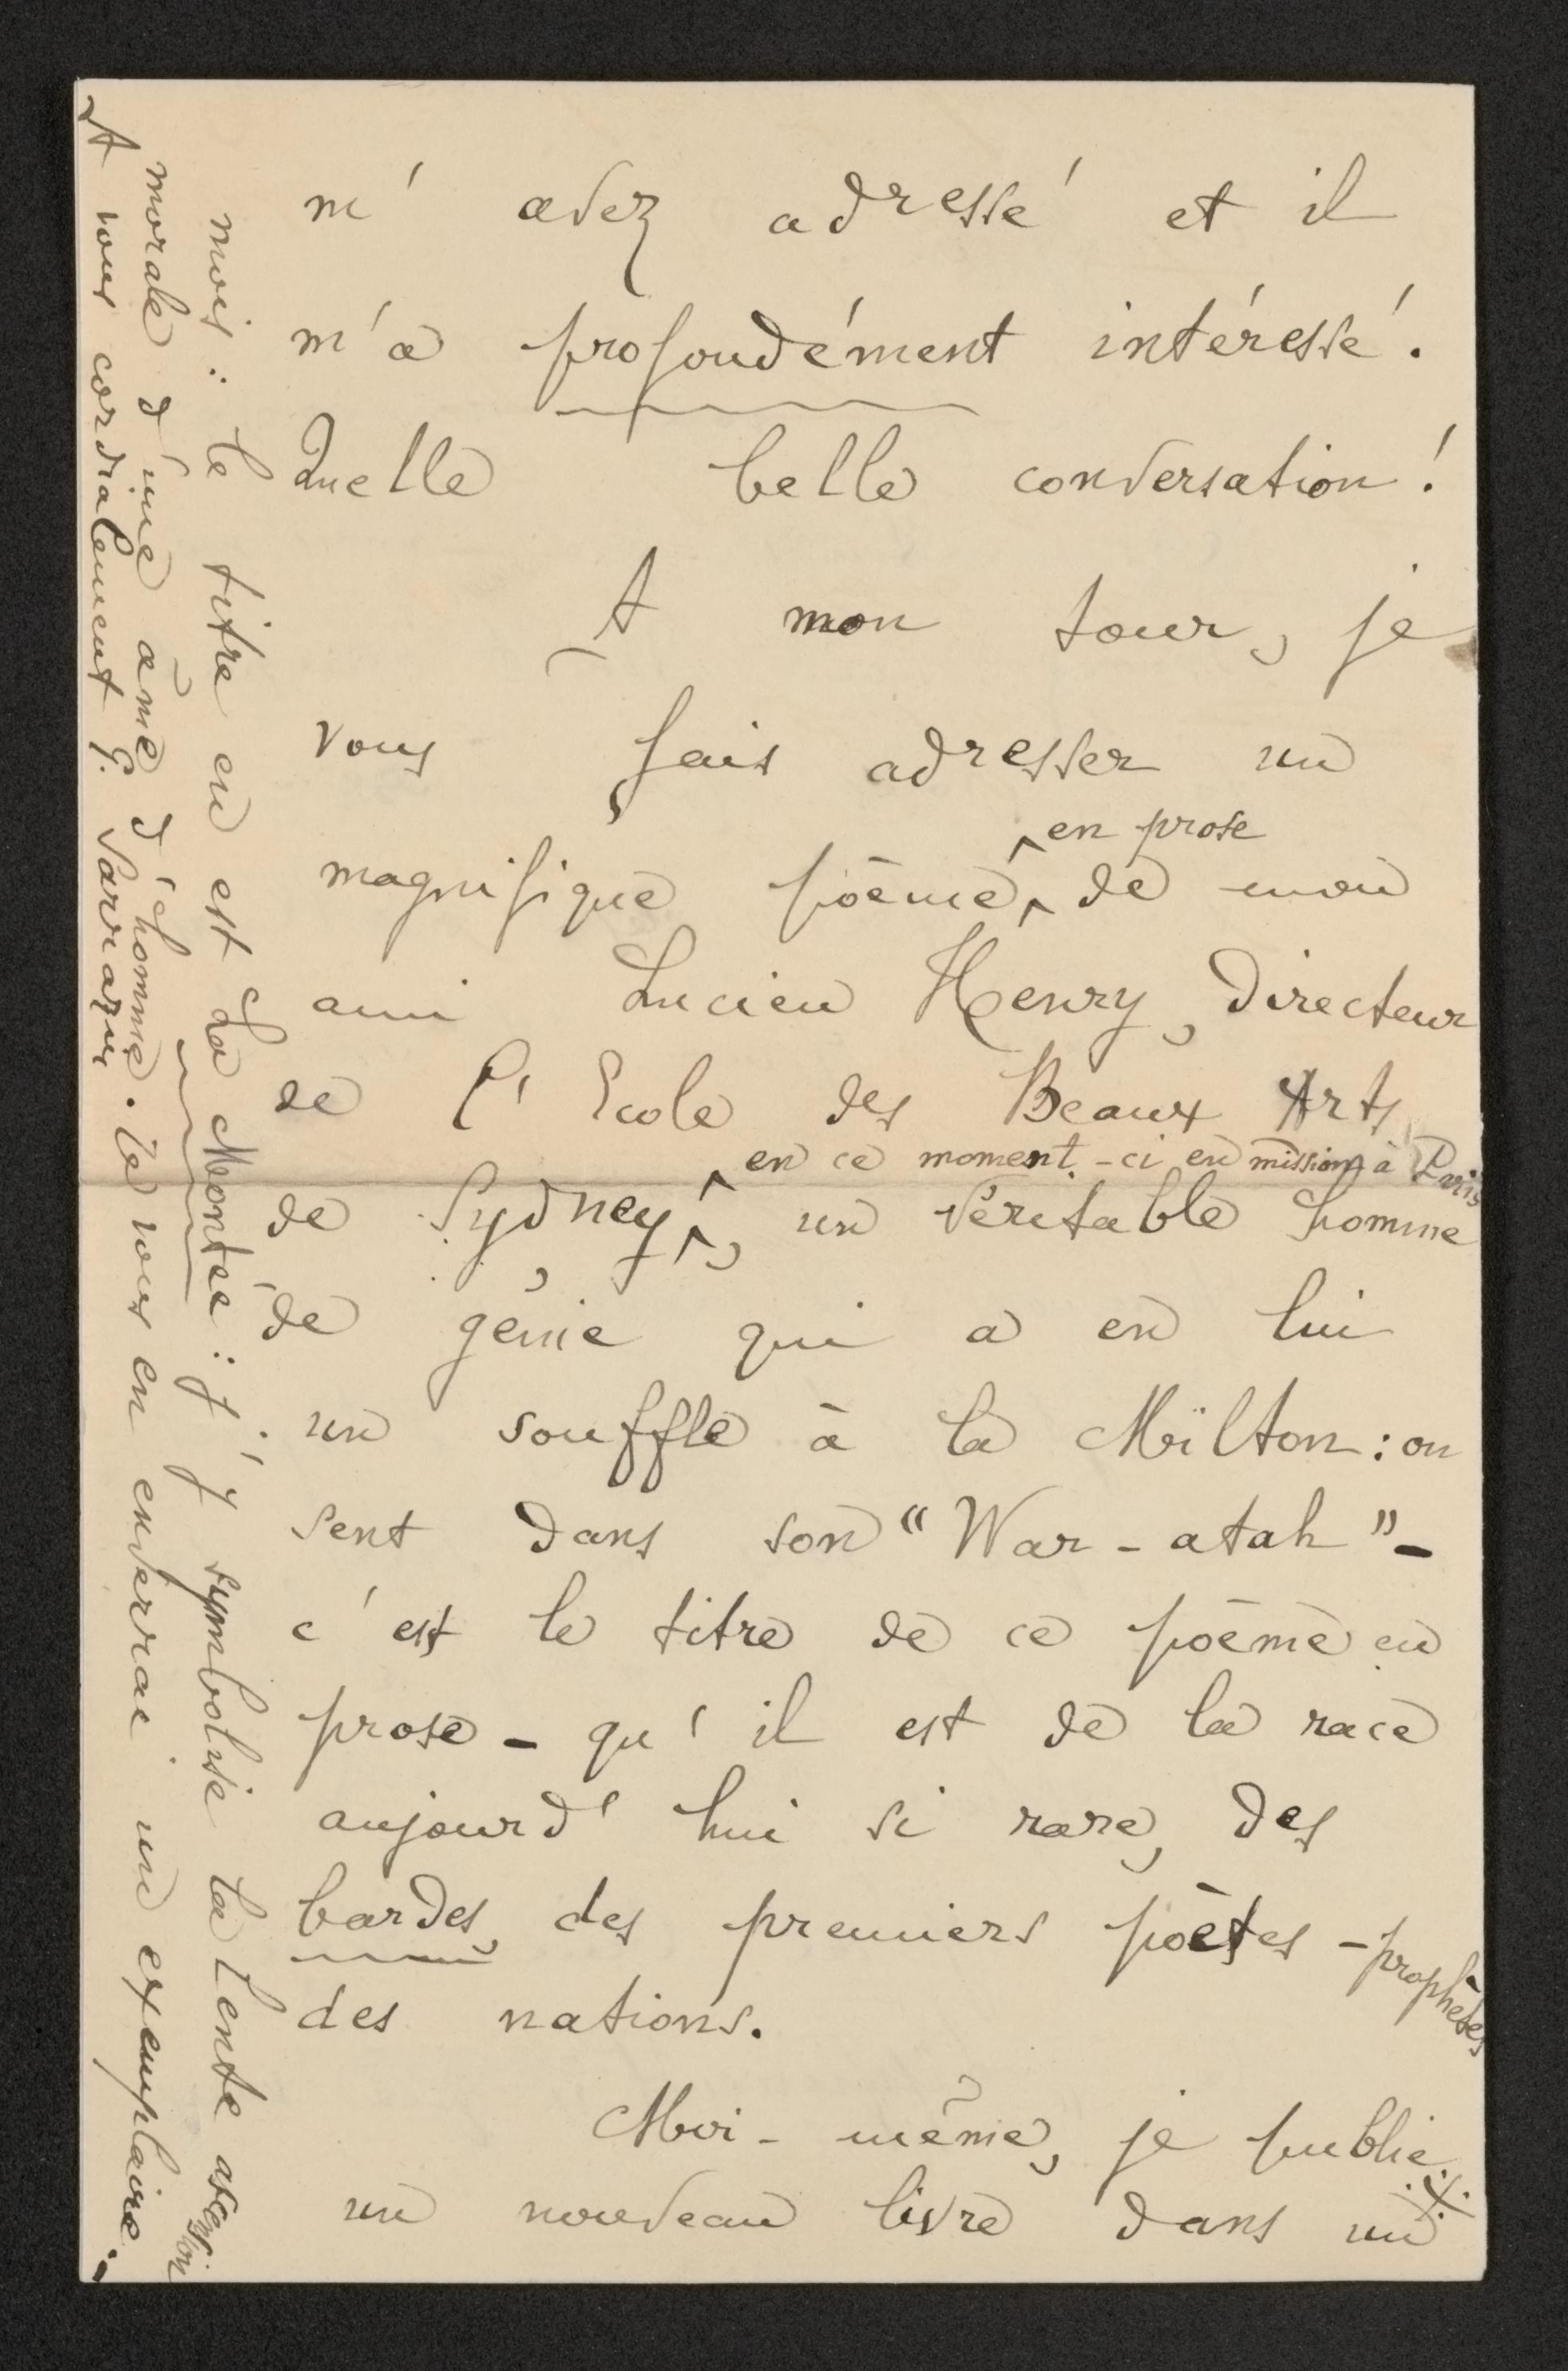 m' avez adressé et il
m'a profondément intéressé.
Quelle belle conversation!
A mon tour, je
vous fais adresser un
magnifique poème ^ en prose ^ de mon
ami Lucien Henry, Directeur
de l' Ecole des Beaux Arts
de Sydney ^ en ce moment-ci en mission à Paris ^, un véritable homme
de génie qui a en lui
un souffle à la Milton : on
sent dans son "War-atah" -
c'est le titre de ce poème en
prose - qu'il est de la race
aujourd'hui si rare, des
bardes, des premiers poètes-prophètes
des nations.
Moi-même, je publie
un nouveau livre dans un
mois : le titre en est La Montée : j'y symbolise la lente ascension
morale d'une âme d'homme. Je vous en enverrai un exemplaire.
A vous cordialement G. Sarrazin